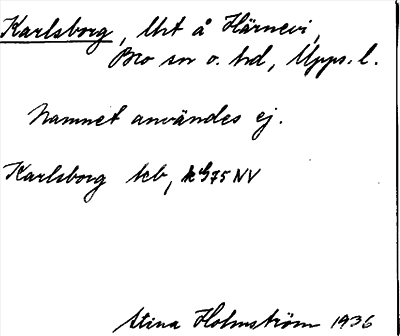 Karlsborg, lht å Härnevi,
Bro sn o. hd, Upps. l.
Namnet användes ej.
Karlsborg kb, k G75 NV
Stina Holmström 1936